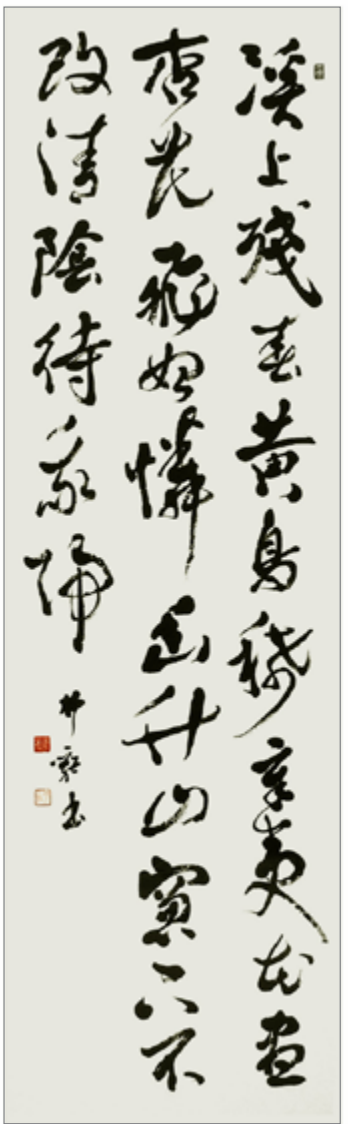 溪上殘春黄鳥稀辛夷花盡
杏花飛始憐幽竹山窗下不
改清陰待我歸